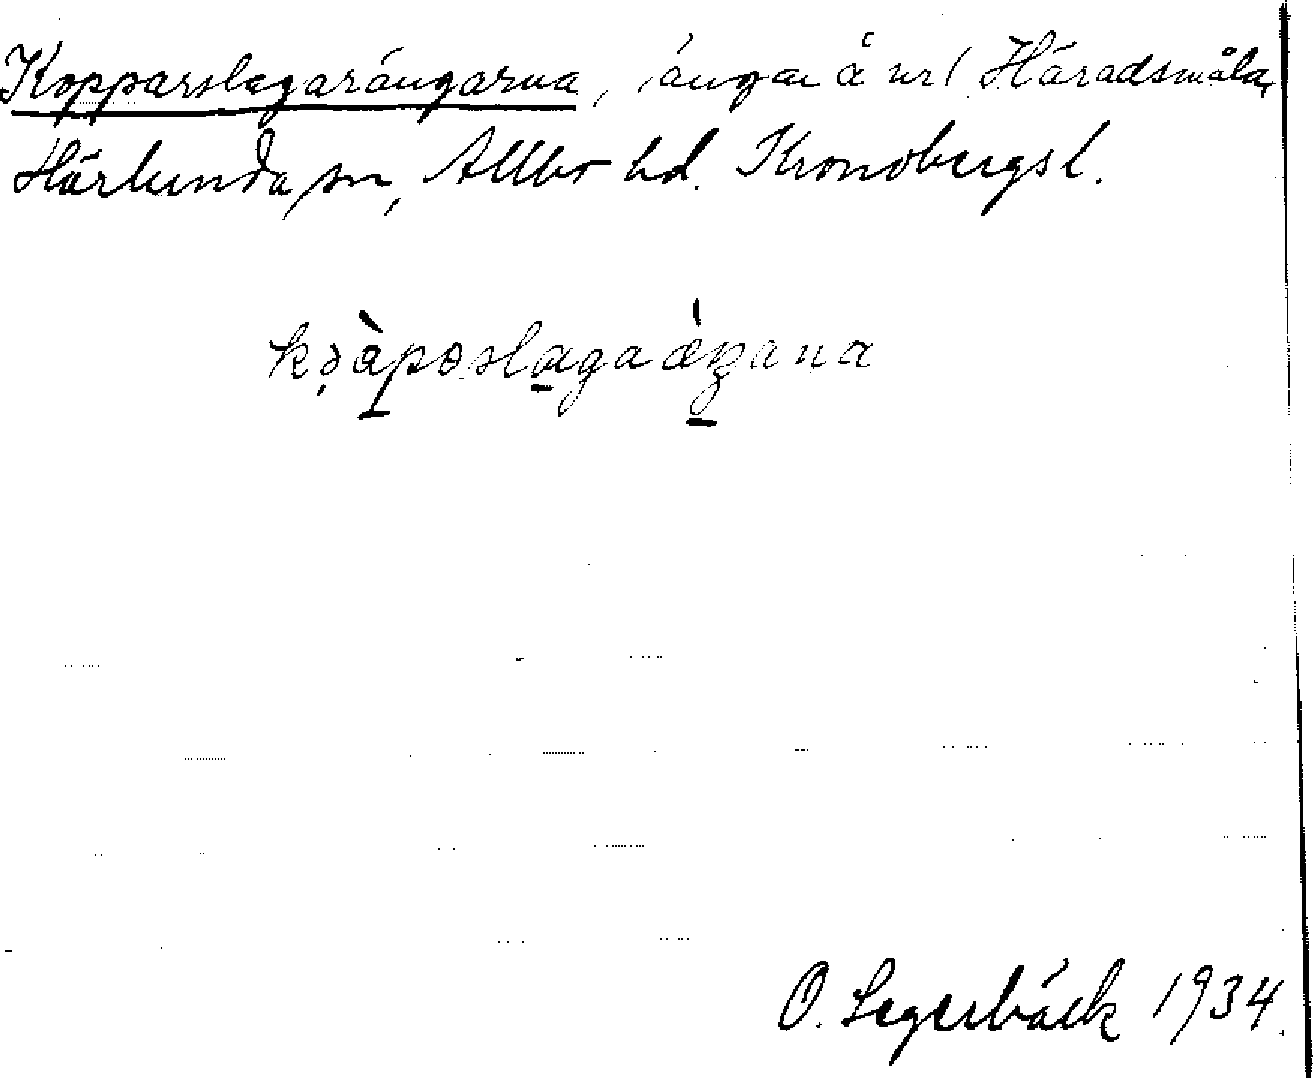 Kopparslagarängarna, ängar å nr 1 Häradsmåla,
Härlunda sn, Allbo hd. Kronobergs l.
kɔàpɔslagaæ̀ŋana
O. Segerbäck 1934.